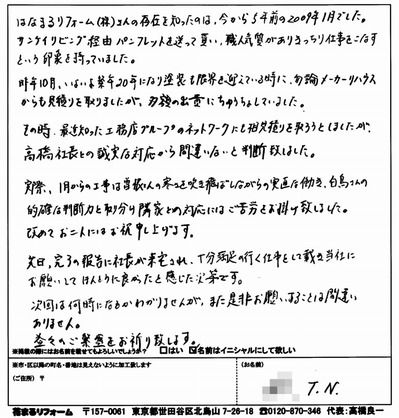 はなまるリフォーム(株)さんの存在を知ったのは、今から5年前の2009年1月でした。
サンケイリビング経由パンフレットを送って貰い、職人気質がありきっちり仕事をこなす
という印象を持っていました。
昨年10月、いよいよ築年20年になり塗装も限界を迎えている時に、勿論メーカーハウス
からも見積りを取りましたが、多額の出費にちゅうちょしていました。
その時、最近知った工務店グループのネットワークにも相見積りを取ろうとしましたが、
高橋社長との誠実な対応から間違いないと判断致しました。
実際、1月からの工事は首振人の寒さを吹き飛ばしながらの実直な働き、白鳥さんの
的確な判断力と取り分け隣家との対応にはご苦労をお掛け致しました。
改めてお二人にはお礼申し上げます。
先日、完了の報告に社長が来宅され、十分満足の行く仕事をして戴き当社に
お願いしてほんとうに良かったと感じた次第です。
次回は何時になるかわかりませんが、また是非お願いすることは間違い
ありません。
益々のご発展をお祈り致します。
※掲載の際にはお名前を載せてもよろしいでしょうか? □はい ☑名前はイニシャルにして欲しい
※市・区以降の町名・番地は見えないように加工致します
(ご住所) 〒
(お名前)
T.N.
花まるリフォーム 〒157-0061 東京都世田谷区北烏山7-26-18 ☎0120-870-346 代表:高橋良一